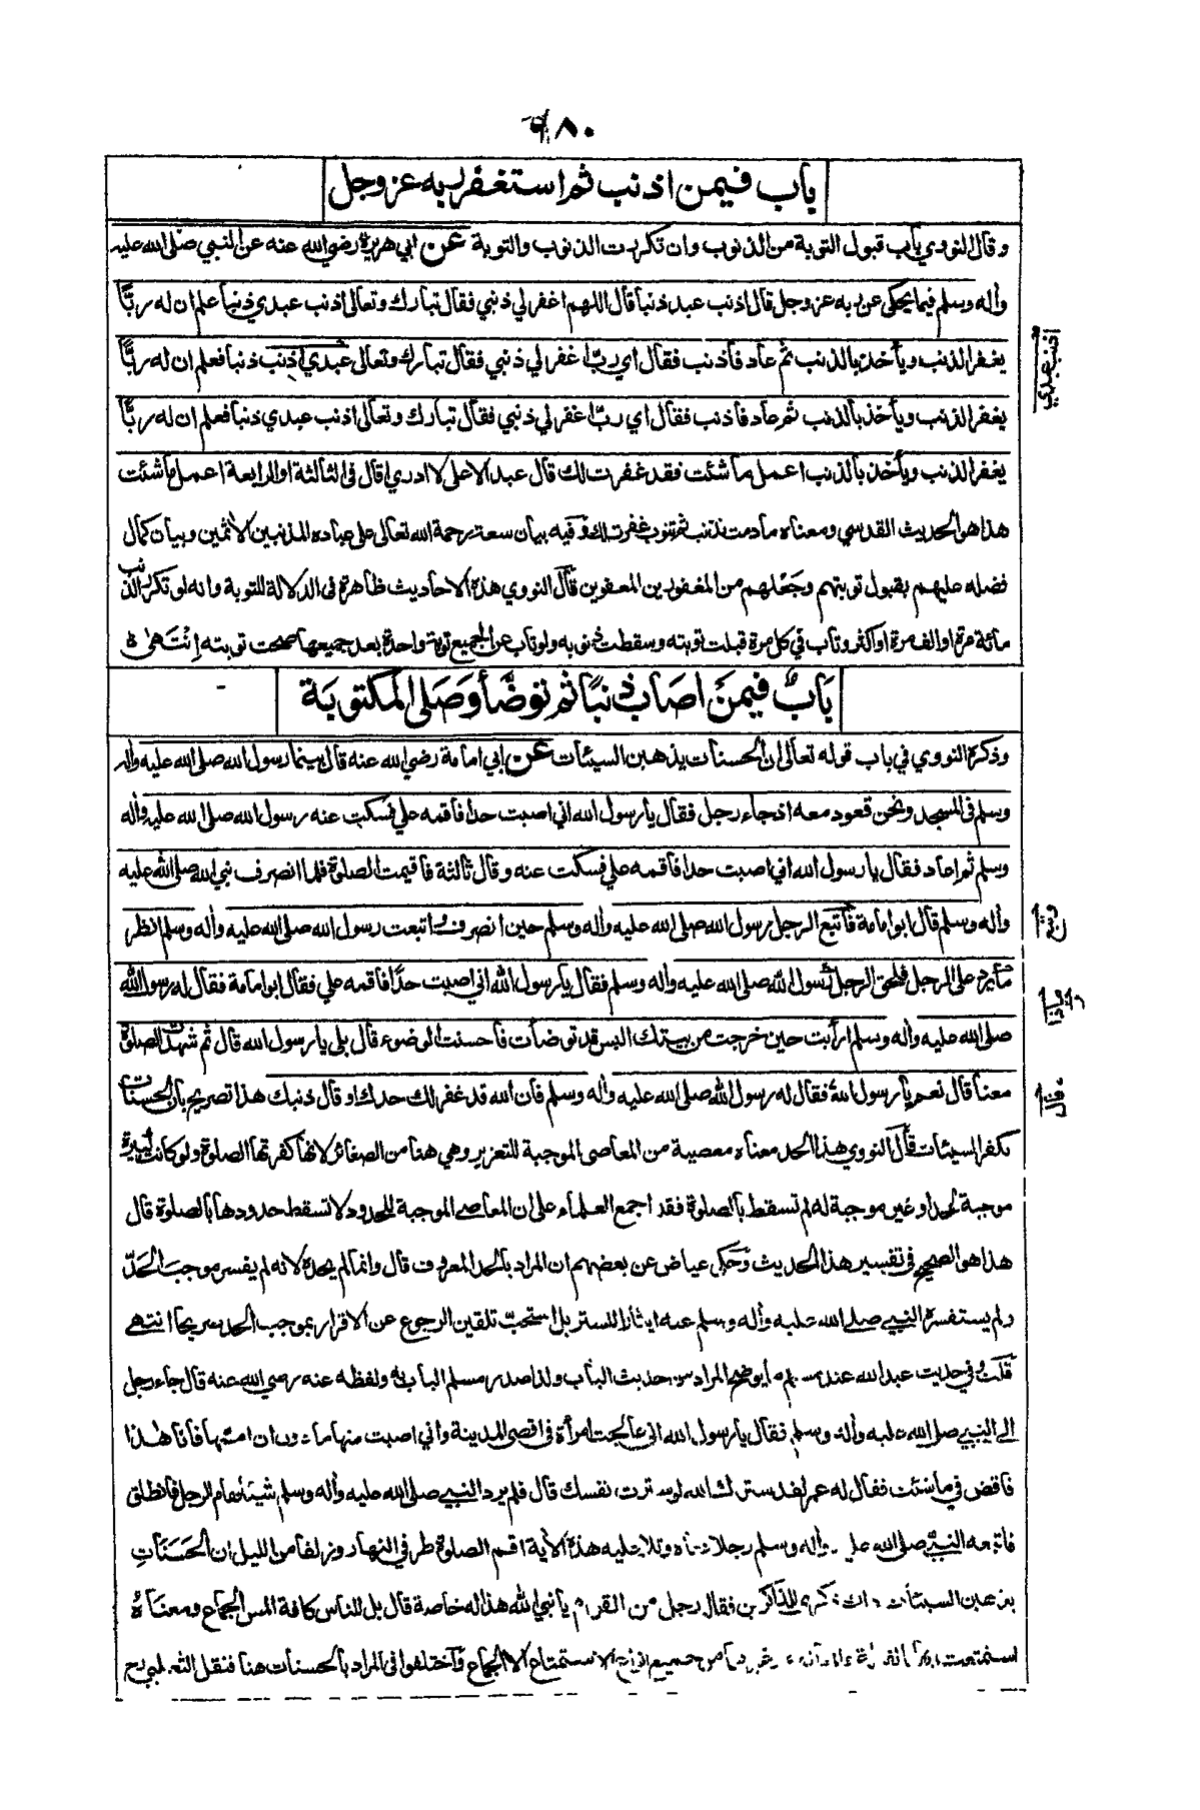 ٦٨٠
باب فيمن اذنب ثم استغفر ربه عز وجل
وقال النووي باب قبول التوبة من الذنوب وان تكررت الذنوب والتوبة عن ابي هريرة رضي الله عنه عن النبي صلى الله عليه
وأله وسلم فيما يحكي عن ربه عز وجل قال اذنب عبد ذنبا قال اللهم اغفر لي ذنبي فقال تبارك وتعالى اذنب عبدي ذنبا علم ان له ربًّا
يغفر الذنب ويأخذ بالذنب ثم عاد فأذنب فقال اي ربّ اغفر لي ذنبي فقال تبارك وتعالى عبدي اذنب ذنبا فعلم ان له ربًّا
اذنب عبدي
يغفر الذنب ويأخذ بالذنب ثم عاد فأذنب فقال اي ربّ اغفر لي ذنبي فقال تبارك وتعالى اذنب عبدي ذنبا فعلم ان له ربًّا
يغفر الذنب ويأخذ بالذنب اعمل ما شئت فقد غفرت لك قال عبد الاعلى لا ادري اقال في الثالثة او الرابعة اعمل ما شئت
هذا هو الحديث القدسي ومعناه ما دمت تذنب ثم تتوب غفرت لك وفيه بيان سعة رحمة الله تعالى على عباده المذنبين الأثمين وبيان كمال
فضله عليهم بقبول توبتهم وجعلهم من المغفورين المعفوين قال النووي هذه الاحاديث ظاهرة في الدلالة للتوبة وانه لو تكرر الذنب
مائة مرة او الف مرة او اكثر وتاب في كل مرة قبلت توبته وسقطت ذنوبه ولو تاب عن الجميع توبة واحدة بعد جميعها صحت توبته إنتهى
بابٌ فيمن اصاب ذنبًا ثم توضّأ وصلى المكتوبة
وذكره النووي في باب قوله تعالى ان الحسنات يذهبن السيئات عن ابي امامة رضي الله عنه قال بينما رسول الله صلى الله عليه وأله
وسلم في المسجد ونحن قعود معه اذ جاء رجل فقال يا رسول الله اني اصبت حدا فأقمه علي فسكت عنه رسول الله صلى الله عليه وأله
وسلم ثم اعاد فقال يا رسول الله اني اصبت حدا فأقمه علي فسكت عنه وقال ثالثة فأقيمت الصلوة فلما انصرف نبي الله صلى الله عليه
وأله وسلم قال ابو امامة فأتبع الرجل رسول الله صلى الله عليه وأله وسلم حين انصرف اتبعت رسول الله صلى الله عليه وأله وسلم انظر
ما يرد على الرجل فلحق الرجل رسول الله صلى الله عليه وأله وسلم فقال يا رسول الله اني اصبت حدًّا فأقمه علي فقال ابو امامة فقال له رسول الله
صلى الله عليه وأله وسلم ارأيت حين خرجت من بيتك اليس قد توضأت فأحسنت الوضوء قال بلى يا رسول الله قال ثم شهدت الصلوة
معنا قال نعم يا رسول الله فقال له رسول الله صلى الله عليه وأله وسلم فان الله قد غفر لك حدك او قال ذنبك هذا تصريح بان الحسنات
تكفر السيئات قال النووي هذا الحد معناه معصية من المعاصي الموجبة للتعزير وهي هنا من الصغائر لانها كفرتها الصلوة ولو كانت كبيرة
موجبة لحد او غير موجبة له لم تسقط بالصلوة فقد اجمع العلماء على ان المعاصي الموجبة للحدود لا تسقط حدودها بالصلوة قال
هذا هو الصحيح في تفسير هذا الحديث وحكى عياض عن بعضهم ان المراد بالحد المعروف قال وانما لم يحده لانه لم يفسر موجب الحدّ
ولم يستفسره النبي صلى الله عليه وأله وسلم عنه ايثارا للستر بل استحبّ تلقين الرجوع عن الاقرار بموجب الحد صريحا انتهى
قلت وفي حديث عبد الله عند مسلم ما يوضح المراد من حديث الباب ولذا صدر مسلم الباب به ولفظه عنه رضي الله عنه قال جاء رجل
الى النبي صلى الله عليه وأله وسلم فقال يا رسول الله اني عالجت امرأة في اقصى المدينة واني اصبت منها ما دون ان امسها فأنا هذا
فاقض في ما شئت فقال له عمر لقد سترك الله لو سترت نفسك قال فلم يرد النبي صلى الله عليه وأله وسلم شيئا فقام الرجل فانطلق
فاتبعه النبي صلى الله عليه وأله وسلم رجلا دعاه وتلا عليه هذه الأية اقم الصلوة طرفي النهار وزلفا من الليل ان الحسنات
يذهبن السيئات ذلك ذكرى للذاكرين فقال رجل من القوم يا نبي الله هذا له خاصة قال بل للناس كافة المس الجماع ومعناه
استمتعت بها من جميع انواع الاستمتاع الا الجماع واختلفوا في المراد بالحسنات هنا فنقل الثعلبي